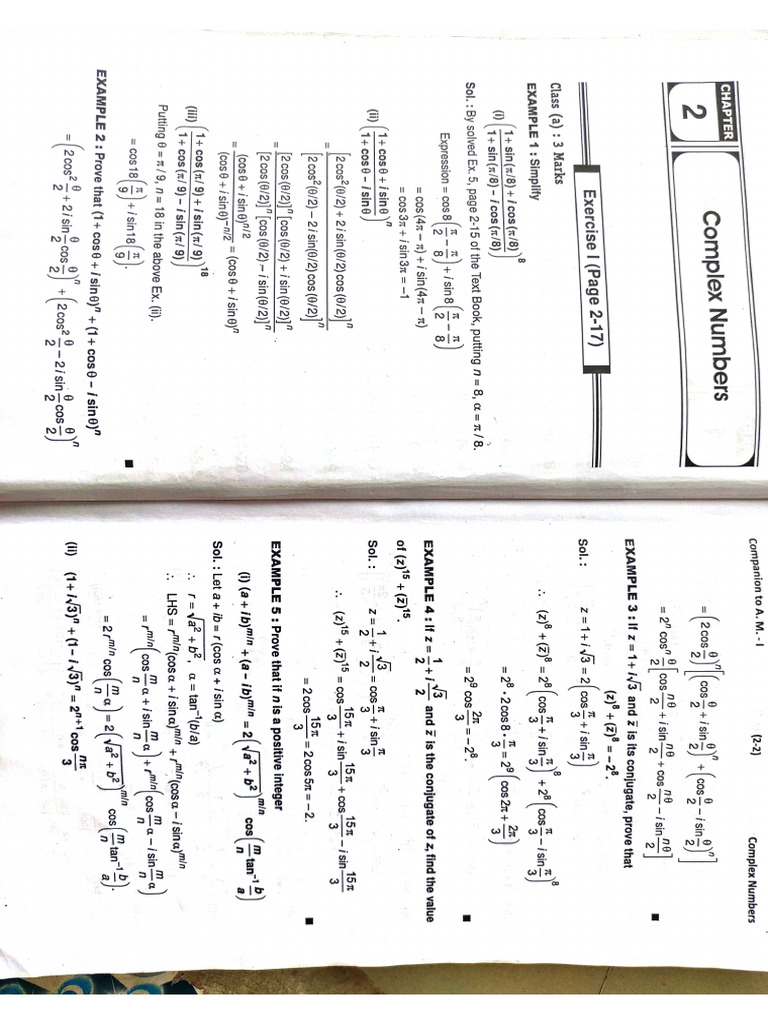 CHAPTER
2
Complex Numbers
Exercise I (Page 2-17)
Class (a) : 3 Marks
EXAMPLE 1 : Simplify
(i) ((1 + sin(π/8) + i cos(π/8))/(1 + sin(π/8) – i cos(π/8)))^8
Sol. : By solved Ex. 5, page 2-15 of the Text Book, putting n = 8, α = π / 8.
Expression = cos 8(π/2 – π/8) + i sin 8(π/2 – π/8)
= cos(4π – π) + i sin(4π – π)
= cos 3π + i sin 3π = –1
(ii) ((1 + cos θ + i sin θ)/(1 + cos θ – i sin θ))^n
= [2 cos²(θ/2) + 2 i sin(θ/2) cos(θ/2)]^n / [2 cos²(θ/2) – 2 i sin(θ/2) cos(θ/2)]^n
= [2 cos(θ/2)]^n [cos(θ/2) + i sin(θ/2)]^n / [2 cos(θ/2)]^n [cos(θ/2) – i sin(θ/2)]^n
= (cos θ + i sin θ)^n/2 / (cos θ + i sin θ)^–n/2 = (cos θ + i sin θ)^n
(iii) ((1 + cos(π/9) + i sin(π/9))/(1 + cos(π/9) – i sin(π/9)))^18
Putting θ = π / 9, n = 18 in the above Ex. (ii).
= cos 18(π/9) + i sin 18(π/9).
EXAMPLE 2 : Prove that (1 + cos θ + i sin θ)^n + (1 + cos θ – i sin θ)^n
= (2 cos² θ/2 + 2 i sin θ/2 cos θ/2)^n + (2 cos² θ/2 – 2 i sin θ/2 cos θ/2)^n
Companion to A. M. - I (2-2) Complex Numbers
= (2 cos θ/2)^n [(cos θ/2 + i sin θ/2)^n + (cos θ/2 – i sin θ/2)^n]
= 2^n cos^n θ/2 [cos nθ/2 + i sin nθ/2 + cos nθ/2 – i sin nθ/2]
EXAMPLE 3 : If z = 1 + i√3 and z̄ is its conjugate, prove that
(z)^8 + (z̄)^8 = –2^8.
Sol. : z = 1 + i√3 = 2(cos π/3 + i sin π/3)
∴ (z)^8 + (z̄)^8 = 2^8 (cos π/3 + i sin π/3)^8 + 2^8 (cos π/3 – i sin π/3)^8
= 2^8 · 2 cos 8 · π/3 = 2^9 (cos 2π + 2π/3)
= 2^9 cos 2π/3 = –2^8.
EXAMPLE 4 : If z = 1/2 + i √3/2 and z̄ is the conjugate of z, find the value
of (z)^15 + (z̄)^15.
Sol. : z = 1/2 + i √3/2 = cos π/3 + i sin π/3
∴ (z)^15 + (z̄)^15 = cos 15π/3 + i sin 15π/3 + cos 15π/3 – i sin 15π/3
= 2 cos 15π/3 = 2 cos 5π = –2.
EXAMPLE 5 : Prove that if n is a positive integer
(i) (a + ib)^m/n + (a – ib)^m/n = 2(√(a² + b²))^m/n cos(m/n tan⁻¹ b/a)
Sol. : Let a + ib = r (cos α + i sin α)
∴ r = √(a² + b²), α = tan⁻¹(b/a)
∴ LHS = r^m/n (cos α + i sin α)^m/n + r^m/n (cos α – i sin α)^m/n
= r^m/n (cos m/n α + i sin m/n α) + r^m/n (cos m/n α – i sin m/n α)
= 2 r^m/n cos(m/n α) = 2(√(a² + b²))^m/n cos(m/n tan⁻¹ b/a).
(ii) (1 + i√3)^n + (1 – i√3)^n = 2^n+1 cos nπ/3